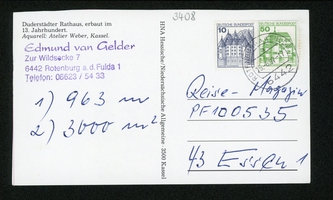 3408
Duderstädter Rathaus, erbaut im
13. Jahrhundert.
Aquarell: Atelier Weber, Kassel.
Edmund van Gelder
Zur Wildsecke 7
6442 Rotenburg a.d. Fulda 1
Telefon: 06623 / 54 33
1) 963 m
2) 3000 m²
HNA Hessische/Niedersächsische Allgemeine · 3500 Kassel
10
DEUTSCHE BUNDESPOST
50
DEUTSCHE BUNDESPOST
6442
Reise-Magazin
PF 100535
43 Essen 1